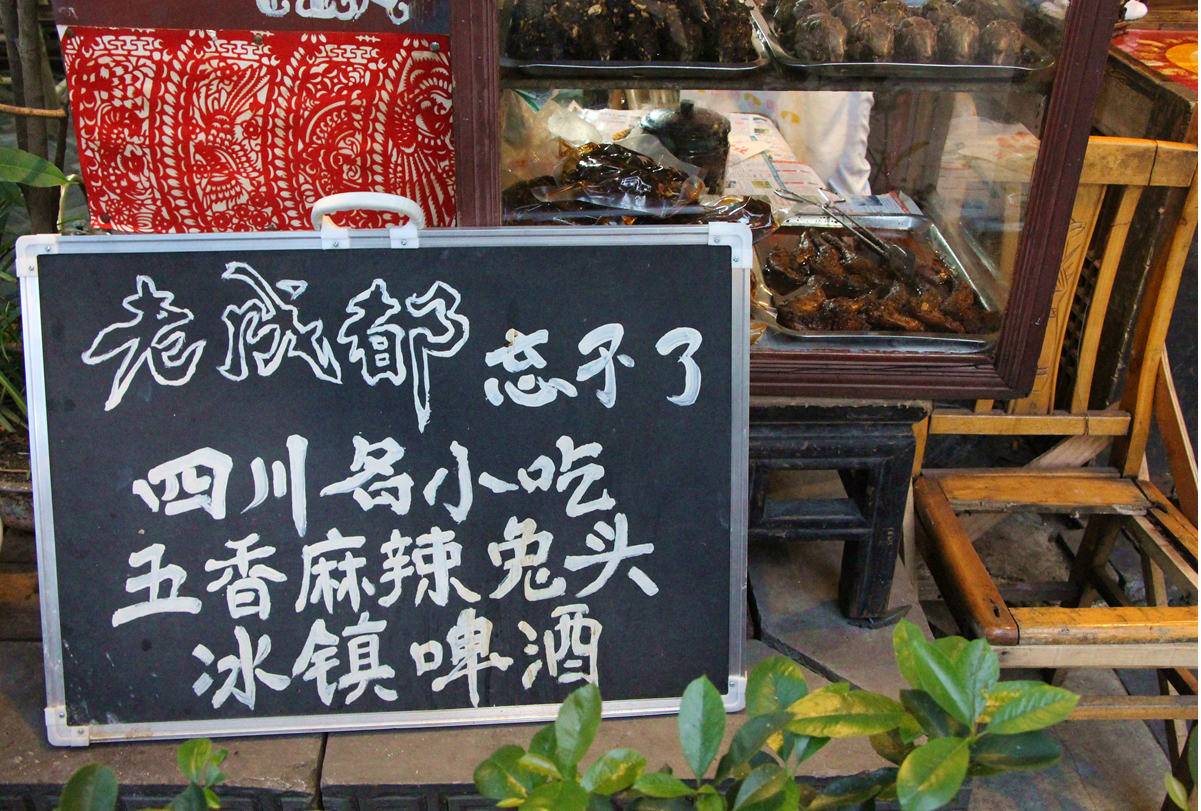 老成都 忘不了
四川名小吃
五香麻辣兔头
冰镇啤酒